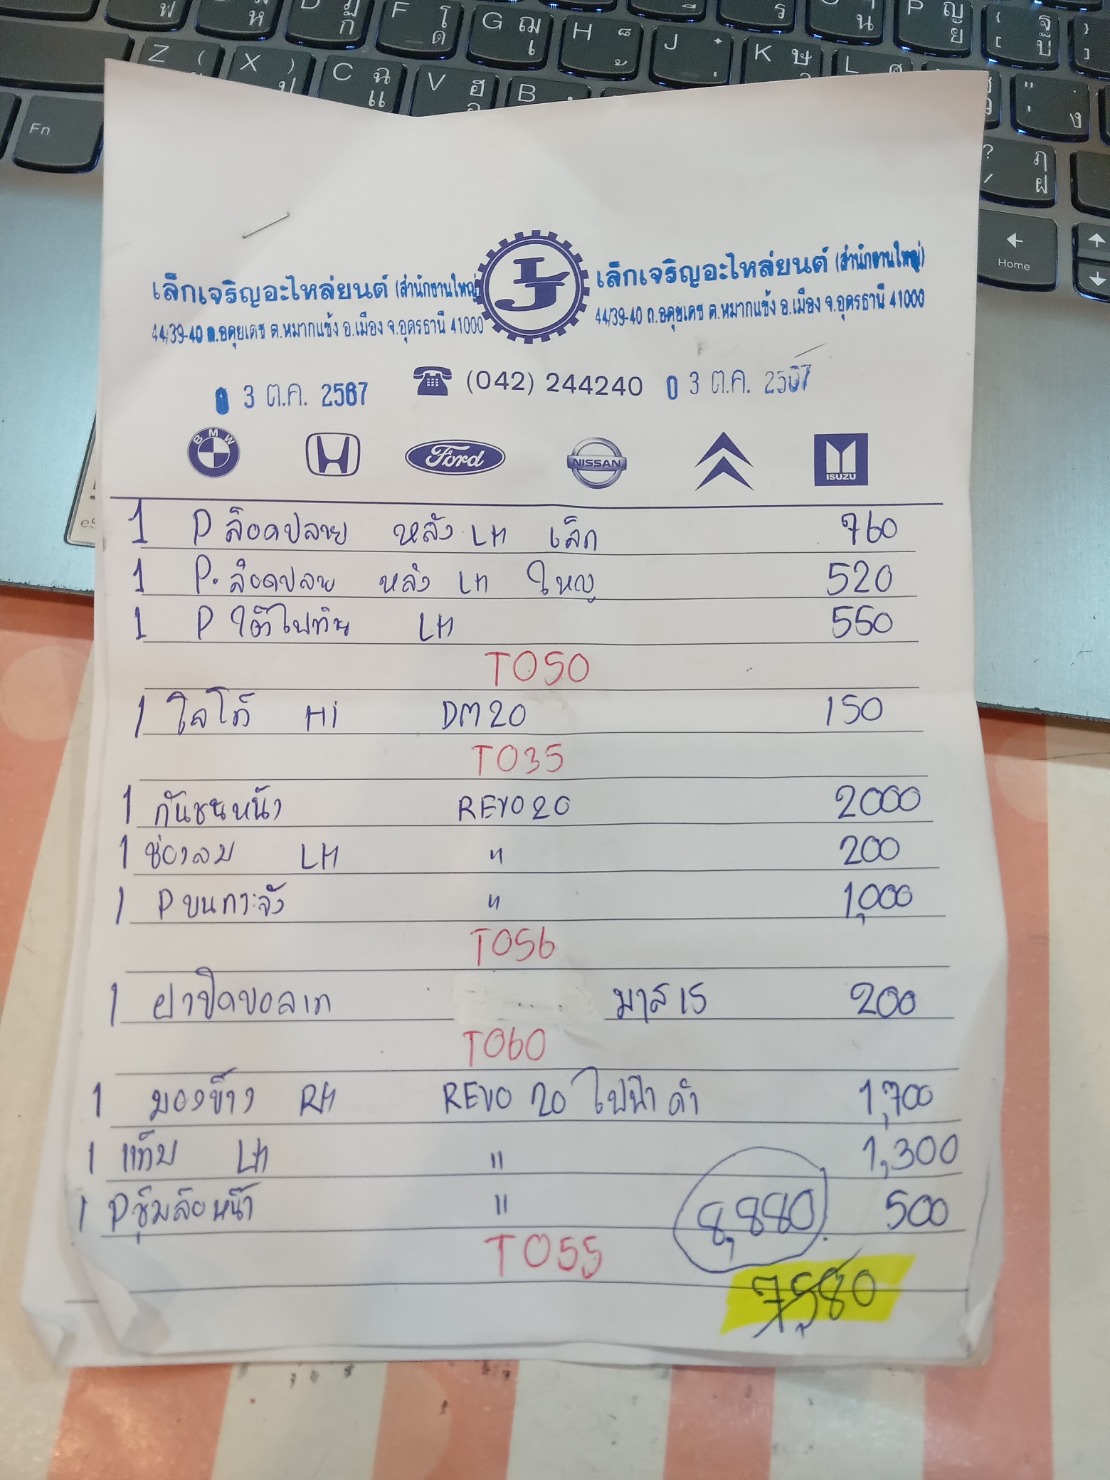 Z ( X ) ป C ฉ แ V ฮ B F โ ด G ฌ เ H J K ษ L P ญ ย Fn Home
เล็กเจริญอะไหล่ยนต์ (สำนักงานใหญ่) LJ เล็กเจริญอะไหล่ยนต์ (สำนักงานใหญ่)
44/39-40 ถ.อดุยเดช ต.หมากแข้ง อ.เมือง จ.อุดรธานี 41000 44/39-40 ถ.อดุยเดช ต.หมากแข้ง อ.เมือง จ.อุดรธานี 41000
0 3 ต.ค. 2567 (042) 244240 0 3 ต.ค. 2567
BMW Ford NISSAN ISUZU
1 P ล็อคปลาย หลัง LH เล็ก 760
1 P. ล็อคปลาย หลัง LH ใหญ่ 520
1 P ใต้ไฟท้าย LH 550
TO50
1 โลโก้ Hi DM20 150
TO35
1 กันชนหน้า REVO 20 2000
1 ช่องลม LH " 200
1 P บนกระจัง " 1,000
TO56
1 ฝาปิดขอลาก มาส 15 200
TO60
1 มองข้าง RH REVO 20 ไฟฟ้า ดำ 1,700
1 แก้ม LH " 1,300
1 P ซุ้มล้อหน้า " 8,880. 500
TO55
7,580